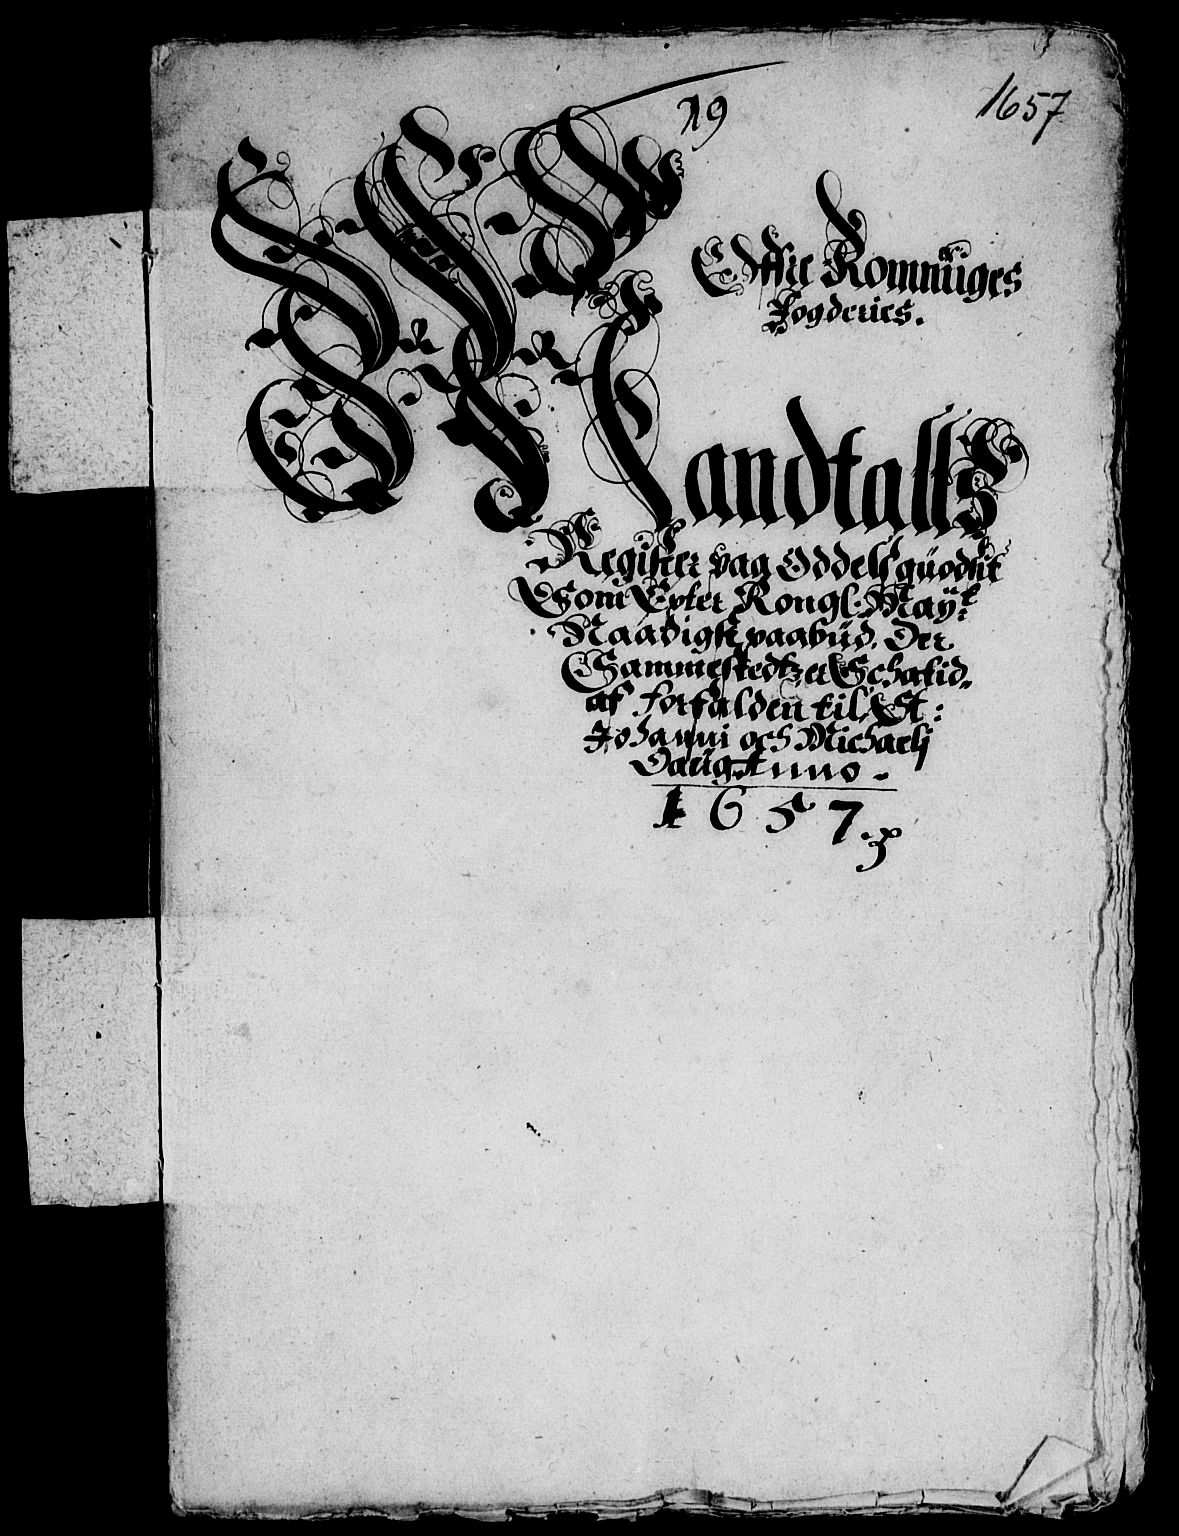 1657
19
Øffre Rommiiges
Fogderies.
Mandtalls
Register paa Oddels güodsit
Som Epter Kongl: May:t
Naadigste paabüd. Der
Sammestedtz er Schatid.
af forfalden til St:
Johanni och Michaeli
Daug Anno.
1657.